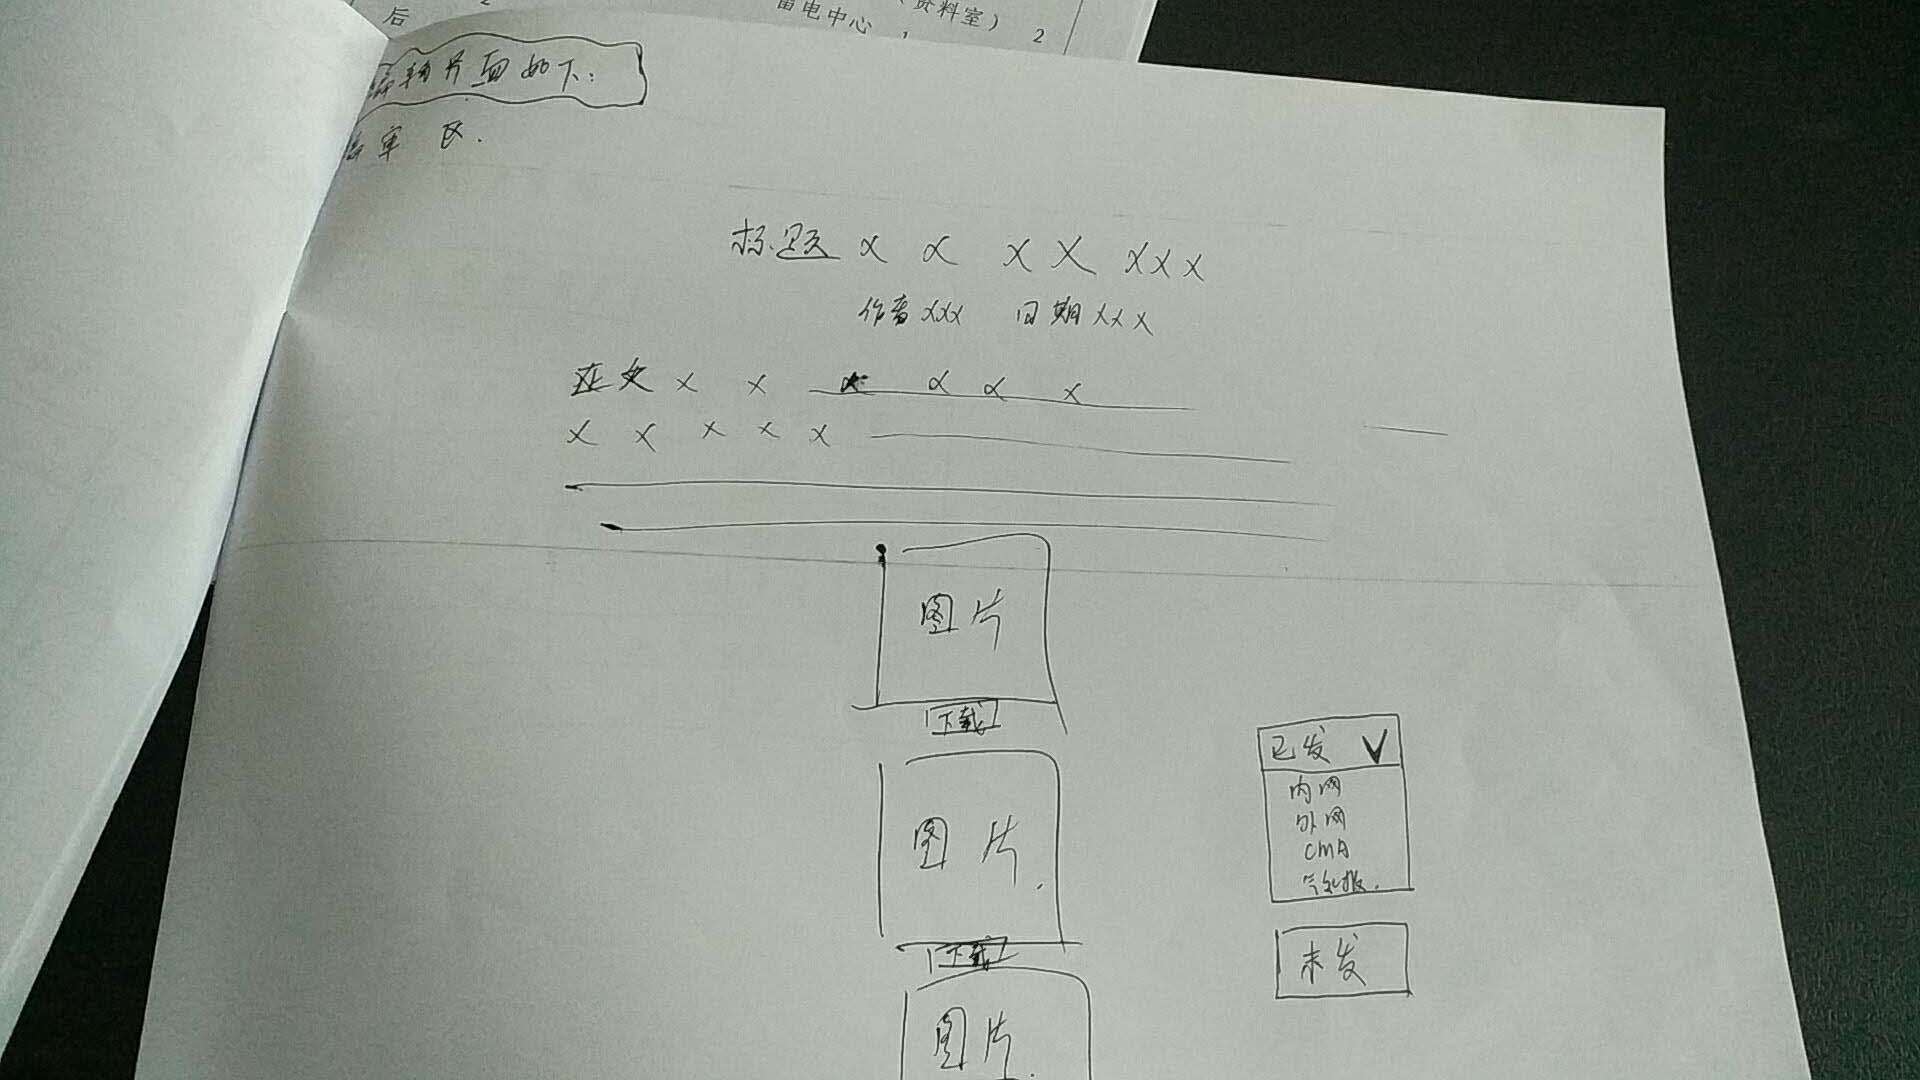 后 2 雷电中心 1 (资料室) 2
编辑界面如下:
编审区.
标题 X X X X X X X
作者 XXX 日期 XXX
正文 X X X X X X
X X X X X
图片
下载
图片.
下载
图片.
已发 ✓
内网
外网
CMA
气象报.
未发